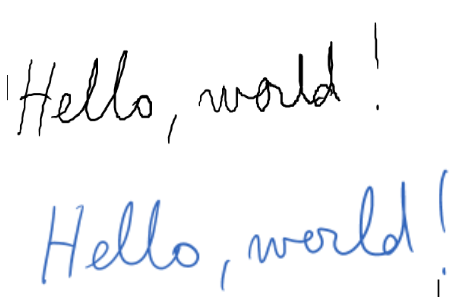 Hello, world!
Hello, world!